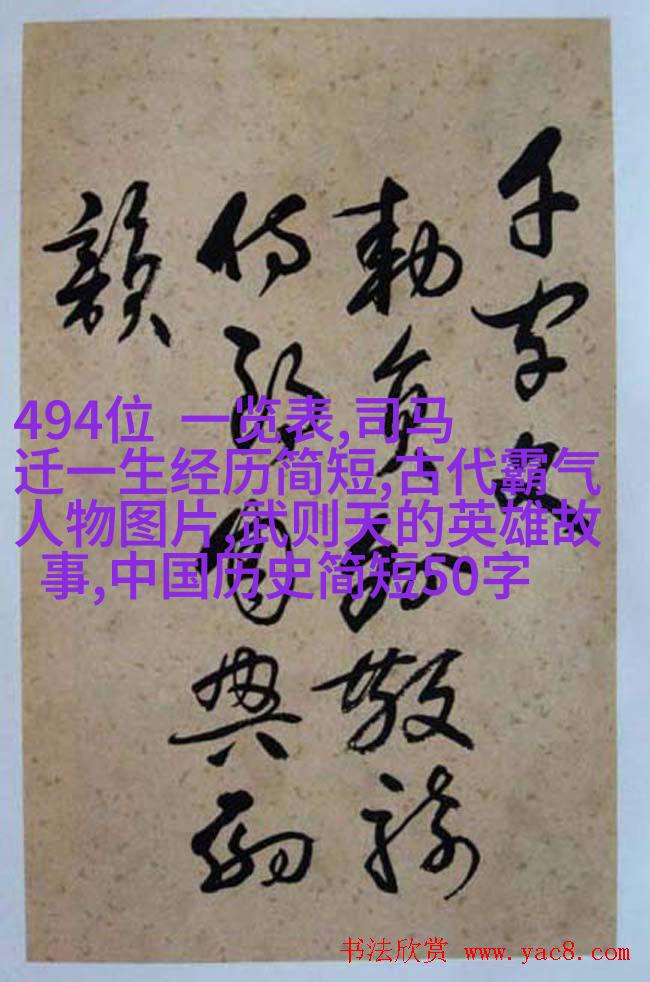 千字文
勅員外散騎
侍郎周興嗣
韻
494位 一览表,司马
迁一生经历简短,古代霸气
人物图片,武则天的英雄故
事,中国历史简短50字
书法欣赏 www.yac8.com